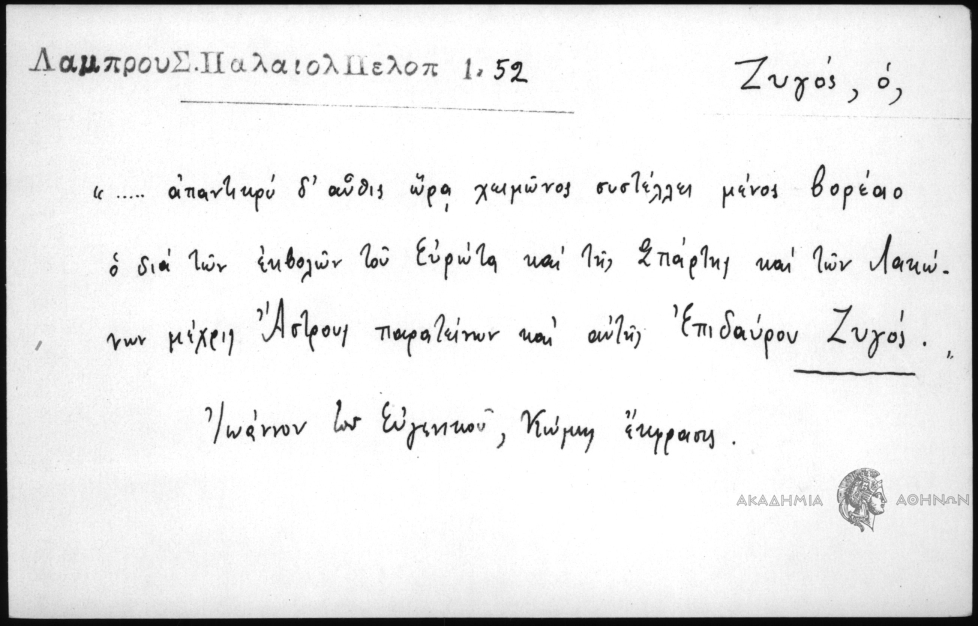 ΛαμπρουΣ.ΠαλαιολΠελοπ 1.52
Ζυγός, ὁ,
"..... ἀπαντικρύ δ' αὖθις ὥρᾳ χειμῶνος συστέλλει μένος βορέαο
ὁ διά τῶν ἐκβολῶν τοῦ Εὐρώτα καί τῆς Σπάρτης καί τῶν Λακώ-
νων μέχρις Ἄστρους παρατείνων καί αὐτῆς Ἐπιδαύρου Ζυγός."
Ἰωάννου τοῦ Εὐγενικοῦ, Κώμης ἔκφρασις.
ΑΚΑΔΗΜΙΑ ΑΘΗΝΩΝ